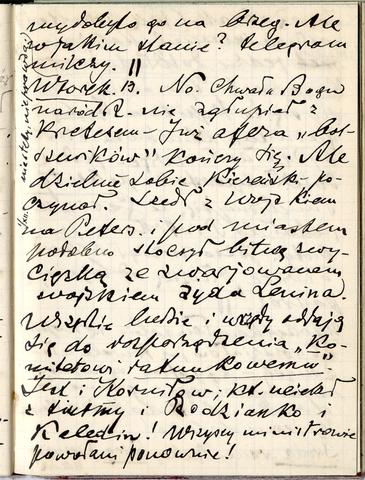 wydobyto go na brzeg. Ale
w jakim stanie? Telegram
milczy. ||
Wtorek. 13. No. Chwała Bogu
naród R. nie zgłupiał z
kretesem – Już afera „bol-
szewików" kończy się. Ale
dzielnie sobie Kiereński po-
czynał. Szedł z wojskiem
na Peters. i pod miastem
podobno stoczył bitwę zwy-
cięską ze zwarjowanem
wojskiem żyda Lenina.
Wszędzie ludzie i urzędy oddają
się do rozporządzenia „Ko-
mitetowi ratunkowemu".
Jest i Korniłow, kt. uciekł
z i Rodzianko i
Keledin! Wszyscy ministrowie
powołani ponownie!
niestety, nieprawda